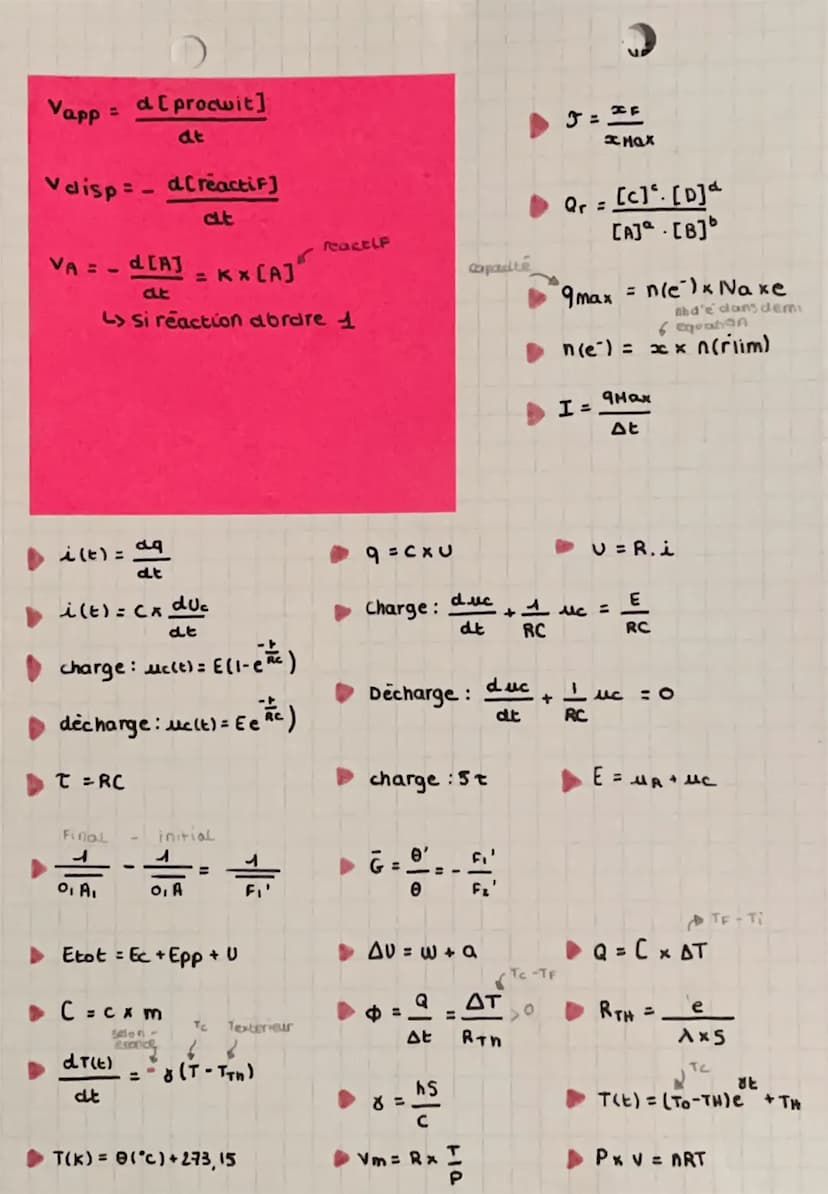 Vapp = d[produit]/dt
Vdisp = - d[réactif]/dt
VA = - d[A]/dt = K × [A] réactif
↳ si réaction d'ordre 1
𝒯 = xF/xMax
Qr = [C]ᶜ · [D]ᵈ / [A]ᵃ · [B]ᵇ
capacité
qmax = n(e⁻) × Na × e
nb d'é dans demi equation
n(e⁻) = x × n(r lim)
I = qMax/Δt
i(t) = dq/dt
q = C × U
U = R.i
i(t) = C × dUc/dt
Charge : duc/dt + 1/RC uc = E/RC
charge : uc(t) = E(1-e^(-t/RC))
Décharge : duc/dt + 1/RC uc = 0
décharge : uc(t) = Ee^(-t/RC))
τ = RC
charge : 5τ
E = uR + uC
Final - initial
1/O₁A₁ - 1/O₁A = 1/F₁'
G = θ'/θ = - F₁'/F₂'
Etot = Ec + Epp + U
ΔU = W + Q
TF - Ti
Q = C × ΔT
C = c × m
Tc - TF
Φ = Q/Δt = ΔT/RTh >0
RTH = e/λ × S
selon
Tc Textérieur
dT(t)/dt = - γ(T - TTh)
γ = hS/C
Tc
T(t) = (T0 - TH)e^γt + TH
T(K) = θ(°C) + 273,15
Vm = R × T/P
P × V = nRT